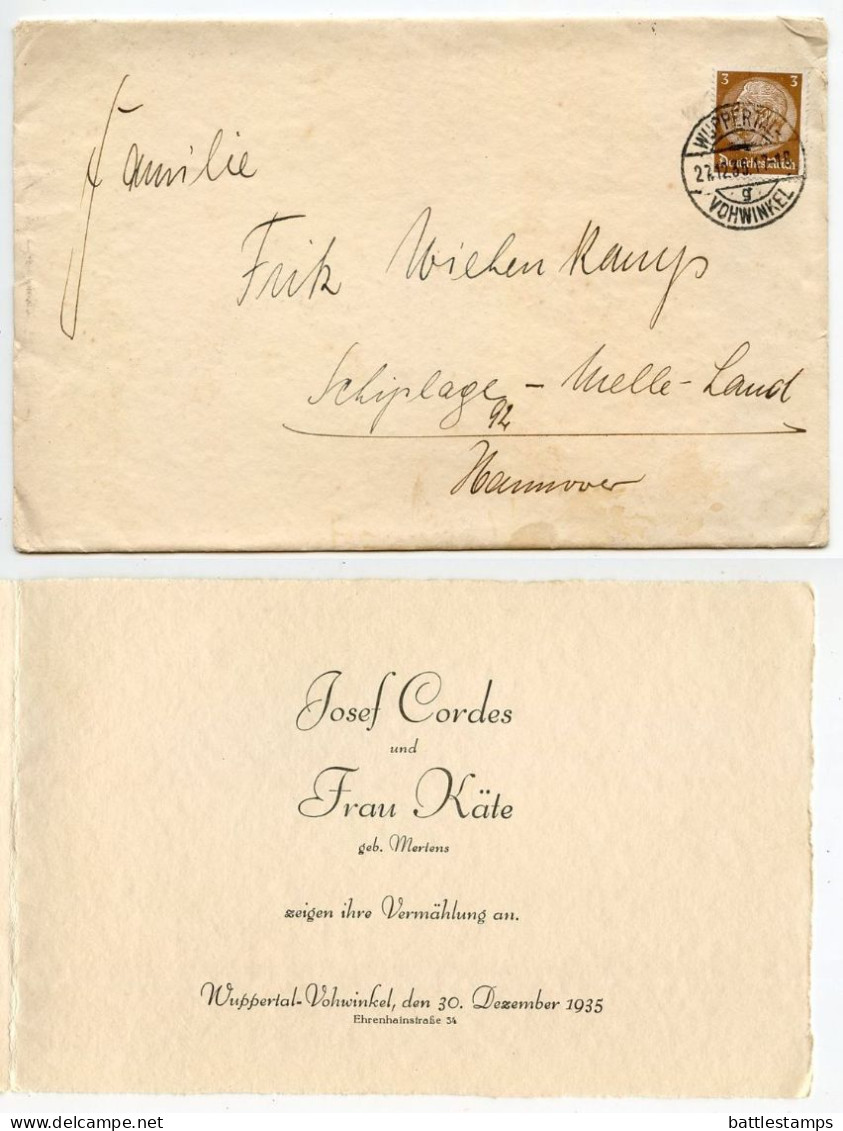 3 3
Deutsches Reich
WUPPERTAL-
27.12.35.
g
VOHWINKEL
Familie
Fritz Wiehenkamp
Schiplage - Melle-Land
92
Hannover
Josef Cordes
und
Frau Käte
geb. Mertens
zeigen ihre Vermählung an.
Wuppertal-Vohwinkel, den 30. Dezember 1935
Ehrenhainstraße 34
delcampe.net
battlestamps